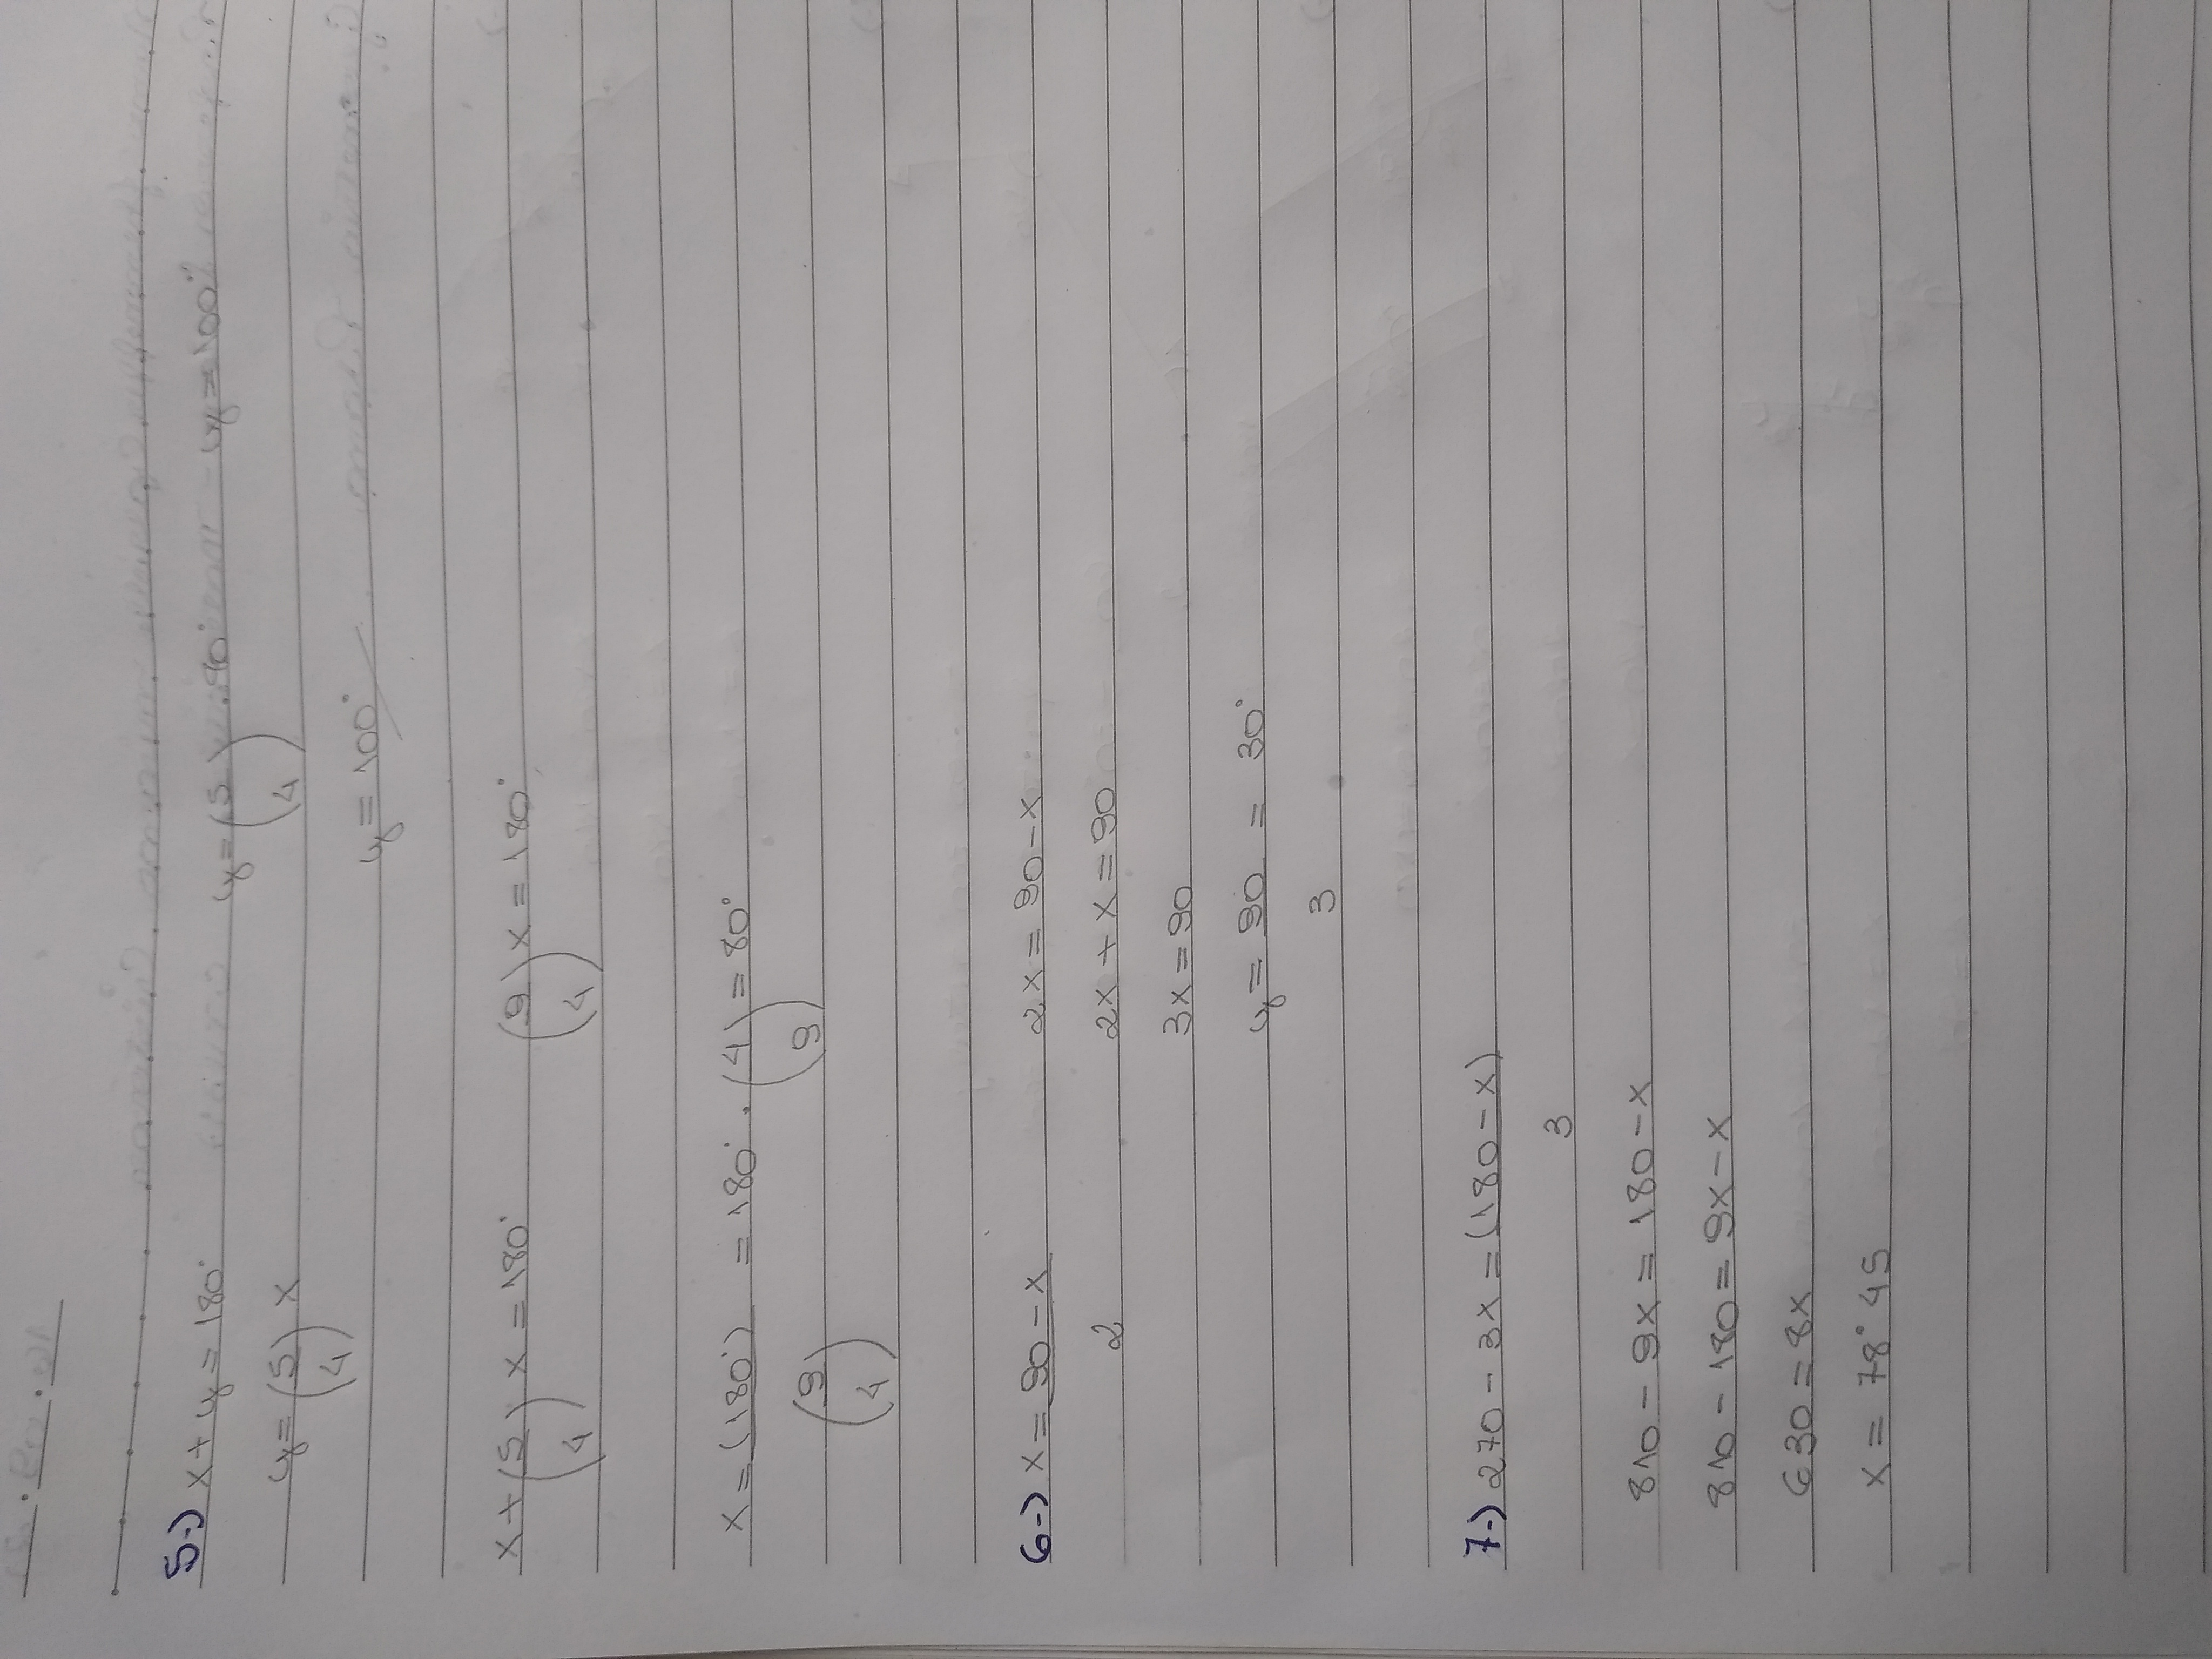 5-) x + y = 180° y = (5/4) . 80° - y = 100°
y = (5/4) x
y = 100°
x + (5/4) x = 180° (9/4) x = 180°
x = (180°)/(9/4) = 180° . (4/9) = 80°
6-) x = 90 - x / 2 2x = 90 - x
2x + x = 90
3x = 90
y = 90/3 = 30°
7-) 270 - 3x = (180 - x)/3
810 - 9x = 180 - x
810 - 180 = 9x - x
630 = 8x
x = 78° 45